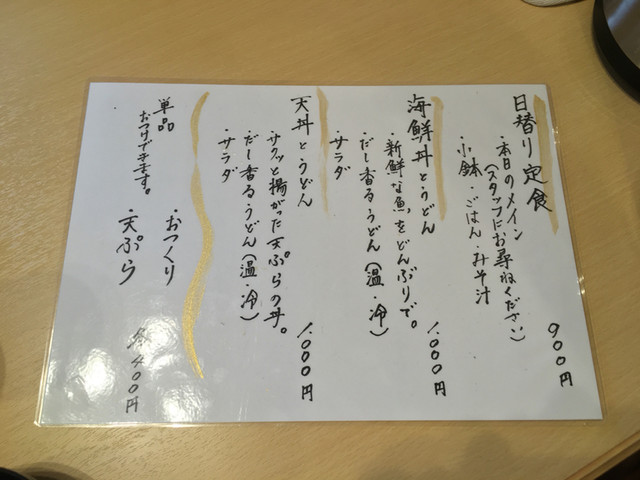 日替り定食
・本日のメイン
(スタッフにお尋ねください)
・小鉢・ごはん・みそ汁
900円
海鮮丼とうどん
・新鮮な魚をどんぶりで。
・だし香るうどん(温・冷)
・サラダ
1,000円
天丼とうどん
・サクッと揚がった天ぷらの丼。
・だし香るうどん(温・冷)
・サラダ
1,000円
単品
おつけできます。
・おつくり
・天ぷら
各400円